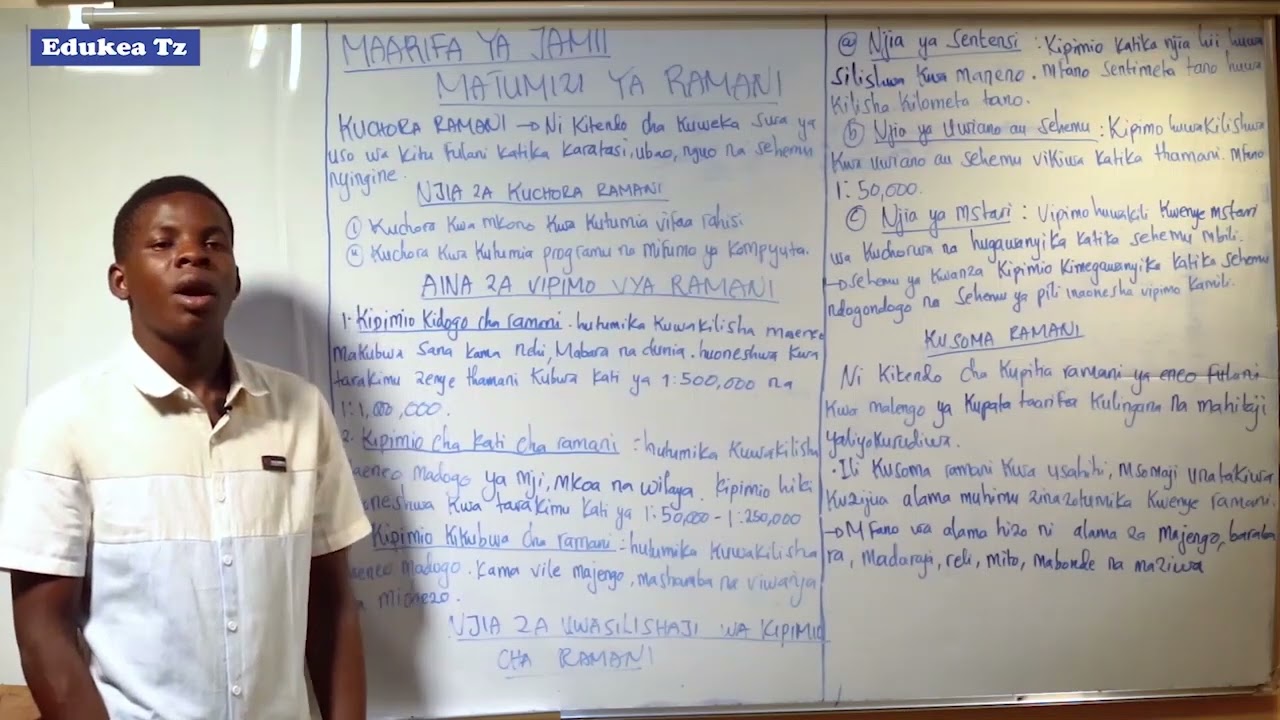 Edukea Tz
MAARIFA YA JAMII
MATUMIZI YA RAMANI
KUCHORA RAMANI → Ni kitendo cha kuweka sura ya
uso wa kitu fulani katika karatasi, ubao, nguo na sehemu
nyingine.
NJIA ZA KUCHORA RAMANI
(i) Kuchora kwa mkono kwa kutumia vifaa rahisi.
(ii) Kuchora kwa kutumia programu na mifumo ya kompyuta.
AINA ZA VIPIMO VYA RAMANI
1. Kipimio kidogo cha ramani. hutumika kuwakilisha maeneo
makubwa sana kama nchi, Mabara na dunia. huoneshwa kwa
tarakimu zenye thamani kubwa kati ya 1:500,000 na
1:1,000,000.
2. Kipimio cha kati cha ramani = hutumika kuwakilisha
maeneo madogo ya mji, mkoa na wilaya. kipimio hiki
huoneshwa kwa tarakimu kati ya 1:50,000 - 1:250,000
Kipimio kikubwa cha ramani = hutumika kuwakilisha
maeneo madogo. kama vile majengo, mashamba na viwanja
michezo.
NJIA ZA UWASILISHAJI WA KIPIMIO
CHA RAMANI
(a) Njia ya sentensi : Kipimio katika njia hii huwa
silishwa kwa maneno. mfano sentimeta tano huwa
kilisha kilometa tano.
(b) Njia ya Uwiano au sehemu : Kipimo huwakilishwa
kwa uwiano au sehemu vikiwa katika thamani. mfano
1:50,000.
(c) Njia ya mstari : Vipimo huwakili kwenye mstari
wa kuchorwa na hugawanyika katika sehemu mbili.
→ sehemu ya kwanza kipimio kimegawanyika katika sehemu
ndogondogo na sehemu ya pili inaonesha vipimo kamili.
KUSOMA RAMANI
Ni kitendo cha kupitia ramani ya eneo fulani
kwa malengo ya kupata taarifa kulingana na mahitaji
yaliyokusudiwa.
· Ili kusoma ramani kwa usahihi, msomaji unatakiwa
kuzijua alama muhimu zinazotumika kwenye ramani.
→ Mfano wa alama hizo ni alama za majengo, baraba
ra, madaraja, reli, mito, mabonde na maziwa